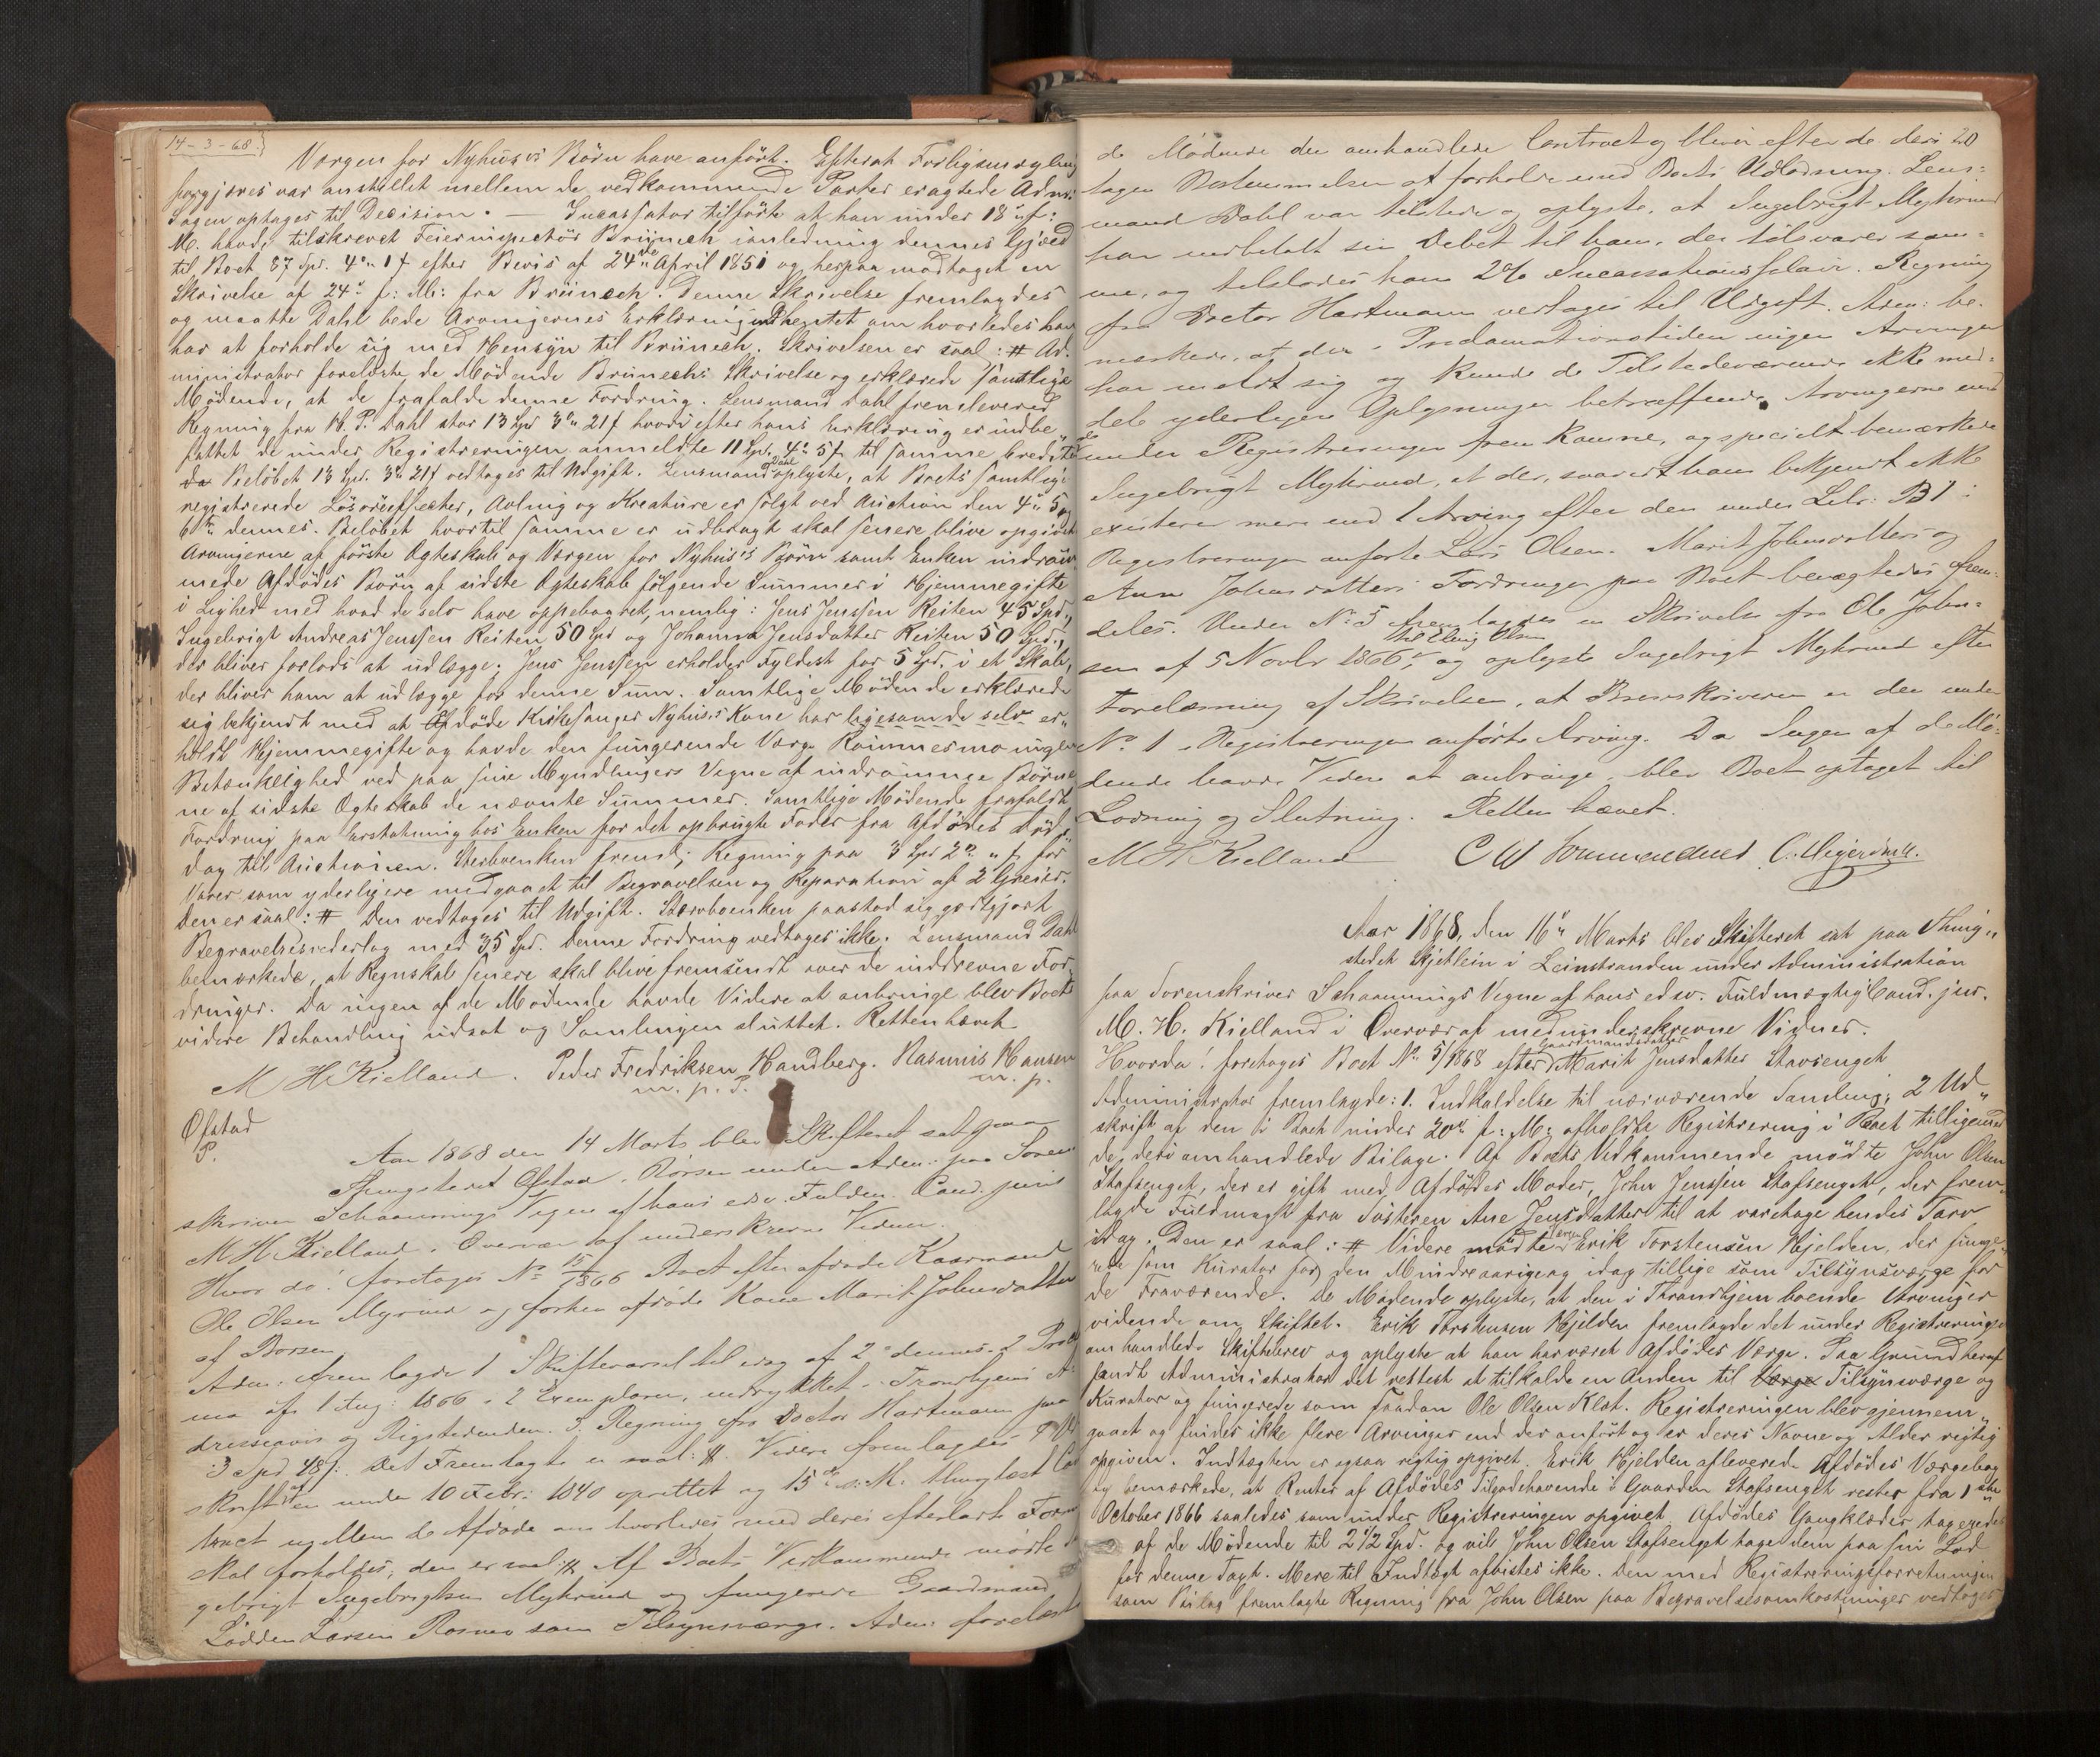 14-3-68.
Værgen for Nyhus's Børn have anført. Efterat Forligsmægling
forgjæves var anstillet mellem de vedkommende Parter eragtede Admr.
Sagen optages til Decision. — Incassator tilførte at han under 18de f:
M. havde tilskrevet Feierinspectør Brünech i anledning dennes Gjæld
til Boet 87 Spd. 4 1 f efter Bevis af 24de April 1851 og herpaa modtaget en
Skrivelse af 24de f: M: fra Brünech. Denne Skrivelse fremlagdes
og maatte Dahl bede Arvingernes Erklæring indhentet om hvorledes han
har at forholde sig med Hensyn til Brünech. Skrivelsen er saal: # Ad-
ministrator foreløste de Mødende Brünechs Skrivelse og erklærede samtlige
Mødende, at de frafalde denne Fordring. Lensmand Dahl fremleverede
Regning fra H. P. Dahl stor 13 Spd 3 21 f hvori efter hans Erklæring er indbe
fattet de under Registreringen anmeldte 11 Spd. 4 5 f til samme Kreditor
da Beløbet 13 Spd. 3 21 f vedtages til Udgift. Lensmand Dahl oplyste, at Boets samtlige
registrerede Løsøreeffecter, Avling og Kreature er solgt ved Auction den 4de 5 og
6te dennes. Beløbet hvortil samme er udbragt skal senere blive opgivet
Arvingerne af første Ægteskab og Værgen for Nyhus's Børn samt Enken indrøm
mede Afdødes Børn af sidste Ægteskab følgende Summer i Hjemmegifte
i Lighed med hvad de selv have oppebaaret, nemlig: Jens Jenssen Reiten 45 Spd.,
Ingebrigt Andreas Jenssen Reiten 50 Spd og Johanna Jensdatter Reiten 50 Spd.,
der bliver forlods at udlægge. Jens Jenssen erholder Fyldest for 5 Spd. i et Skab,
der bliver ham at udlægge for denne Sum. Samtlige Mødende erklærede
sig bekjendt med at Afdøde Kirkesanger Nyhus's Kone har ligesom de selv er-
holdt Hjemmegifte og havde den fungerende Værge Rommesmo ingen
Betænkelighed ved paa sine Myndlingers Vegne at indrømme Børne
ne af sidste Ægteskab de nævnte Summer. Samtlige Mødende frafaldt
Fordring paa Erstatning hos Enken for det opbrugte Foder fra Afdødes Døds
dag til Auctionen. Sterbvenken freml; Regning paa 3 Spd 2 " f for
Varer som yderligere medgaaet til Begravelsen og Reparation af 2 Greier.
Den er saal: # Den vedtages til Udgift. Stervboenken paastod sig godtgjort
Begravelsesvederlag med 35 Spd. Denne Fordring vedtages ikke. Lensmand Dahl
bemærkede, at Regnskab senere skal blive fremsendt over de inddrevne For-
dringer. Da ingen af de Mødende havde Videre at anbringe blev Boets
videre Behandling udsat og Samlingen sluttet. Retten hævet
M H Kielland. Peder Fredriksen Handberg. Rasmus Hansen
m. p. P. m. p.
Øfstad
P.
Aar 1868 den 14 Marts blev Skifteret sat paa
Thingstedet Øfstad i Børsen under Adm: for Soren
skriver Schaannings Vegne af hans edsv. Fuldm. Cand. juris
M H Kielland i Overvær af underskrevne Vidner.
Hvor da! foretoges No 15/1866 Boet efter afdøde Kaarmand
Ole Olsen Myrmo og forhen afdøde Kone Marit Johnsdatter
af Børsen
Adm. fremlagde 1 Skiftevarsel til idag af 2de dennes. 2 Procla
ma af 1 Aug: 1866 i 2 Exemplarer, indrykket i Trondhjems A-
dresseavis og Rigstidenden. 3. Regning fra Doctor Hartmann paa
3 Spd 48 f. Det Fremlagte er saal: #. Videre fremlagdes Ud
skrift af en under 10 Febr: 1840 oprettet og 15de s: M. thinglæst Con
tract mellem de Afdøde om hvorledes med deres efterladte Formue
skal forholdes; den er saal: # Af Boets Vedkommende mødte In
gebrigt Ingebrigtsen Myhrmo og fungerede Gaardmand
Lødden Larsen Rosmo som Tilsynsværge. Adm: forelæste
20
de Mødende den omhandlede Contract og bliver efter de deri
tagen Bestemmelser at forholde med Boets Udlodning. Lens-
mand Dahl var tilstede og oplyste, at Ingebrigt Myhrmo
har indbetalt sin Debet til ham, der tilsvarer sam-
me, og tilstodes ham 2% Incassationssalair. Regning
fra Doctor Hartmann vedtages til Udgift. Adm: be-
mærkede, at der i Proclamationstiden ingen Arvinger
har meldt sig og kunde de Tilstedeværende ikke med-
dele yderligere Oplysninger betræffende Arvingerne end
under Registreringen fremkomne, og specielt bemærkede
Ingebrigt Myhrmo, at der, saavidt ham bekjendt ikke
existerer mere end 1 Arving efter den under Litr: B 1 i
Registreringen anførte Lars Olsen. Marit Johnsdatters og
Ane Johnsdatters Fordringer paa Boet benægtedes frem-
deles. Under No 5 fremlagdes en Skrivelse fra Ole John-
sen af 5 Novbr 1866 til Elling Olsen, og oplyste Ingebrigt Myhrmo efter
Forelæsning af Skrivelsen, at Brevskriveren er den under
No. 1 i Registreringen anførte Arving. Da Ingen af de Mø-
dende havde Videre at anbringe, blev Boet optaget til
Lodning og Slutning. Retten hævet.
M H Kielland
Aar 1868, den 16de Marts blev Skifteret sat paa Thing-
stedet Skjetlein i Leinstranden under Administration
paa Sorenskriver Schaannings Vegne af hans edsv. Fuldmægtig Cand. jur.
M. H. Kielland i Overvær af medunderskrevne Vidner.
Hvorda! foretoges Boet No 5/1868 efter Gaardmandsdatter Marit Jensdatter Stavsenget
Administrator fremlagde: 1. Indkaldelse til nærværende Samling; 2 Ud-
skrift af den i Boet under 20de f: M: afholdte Registrering i Boet tilligemed
de deri omhandlede Bilage. Af Boets Vedkommende mødte John Olsen
Stafsenget, der er gift med Afdødes Moder, John Jenssen Stafsenget, der frem-
lagde Fuldmagt fra Søsteren Ane Jensdatter til at varetage hendes Tarv
idag. Den er saal: # Videre mødte Værgen Erik Torstensen Hjelden, der funge-
rede som Kurator for den Mindreaarige og idag tillige som Tilsynsværge for
de Fraværende. De Mødende oplyste, at den i Throndhjem boende Arvinger
vidende om Skiftet. Erik Torstensen Hjelden fremlagde det under Registreringen
omhandlede Skiftebrev og oplyste at han har været Afdødes Værge. Paa Grund heraf
fandt Administrator det rettest at tilkalde en Anden til Værge Tilsynsværge og
Kurator og fungerede som saadan Ole Olsen Klæt. Registreringen blev gjennem-
gaaet og findes ikke flere Arvinger end der anført og er deres Navne og Alder rigtig
opgiven. Indtægten er ogsaa rigtig opgivet. Erik Hjelden afleverede Afdødes Værgebog
og bemærkede, at Renter af Afdødes Tilgodehavende i Gaarden Stafsenget rester fra 1ste
October 1866 saaledes som under Registreringen opgivet. Afdødes Gangklæder tageredes
af de Mødende til 2 1/2 Spd. og vil John Olsen Stafsenget tage dem paa sin Lod
for denne Taxt. Mere til Indtægt afvistes ikke. Den med Registreringsforretningen
som Bilag fremlagte Regning fra John Olsen paa Begravelsesomkostninger vedtoges